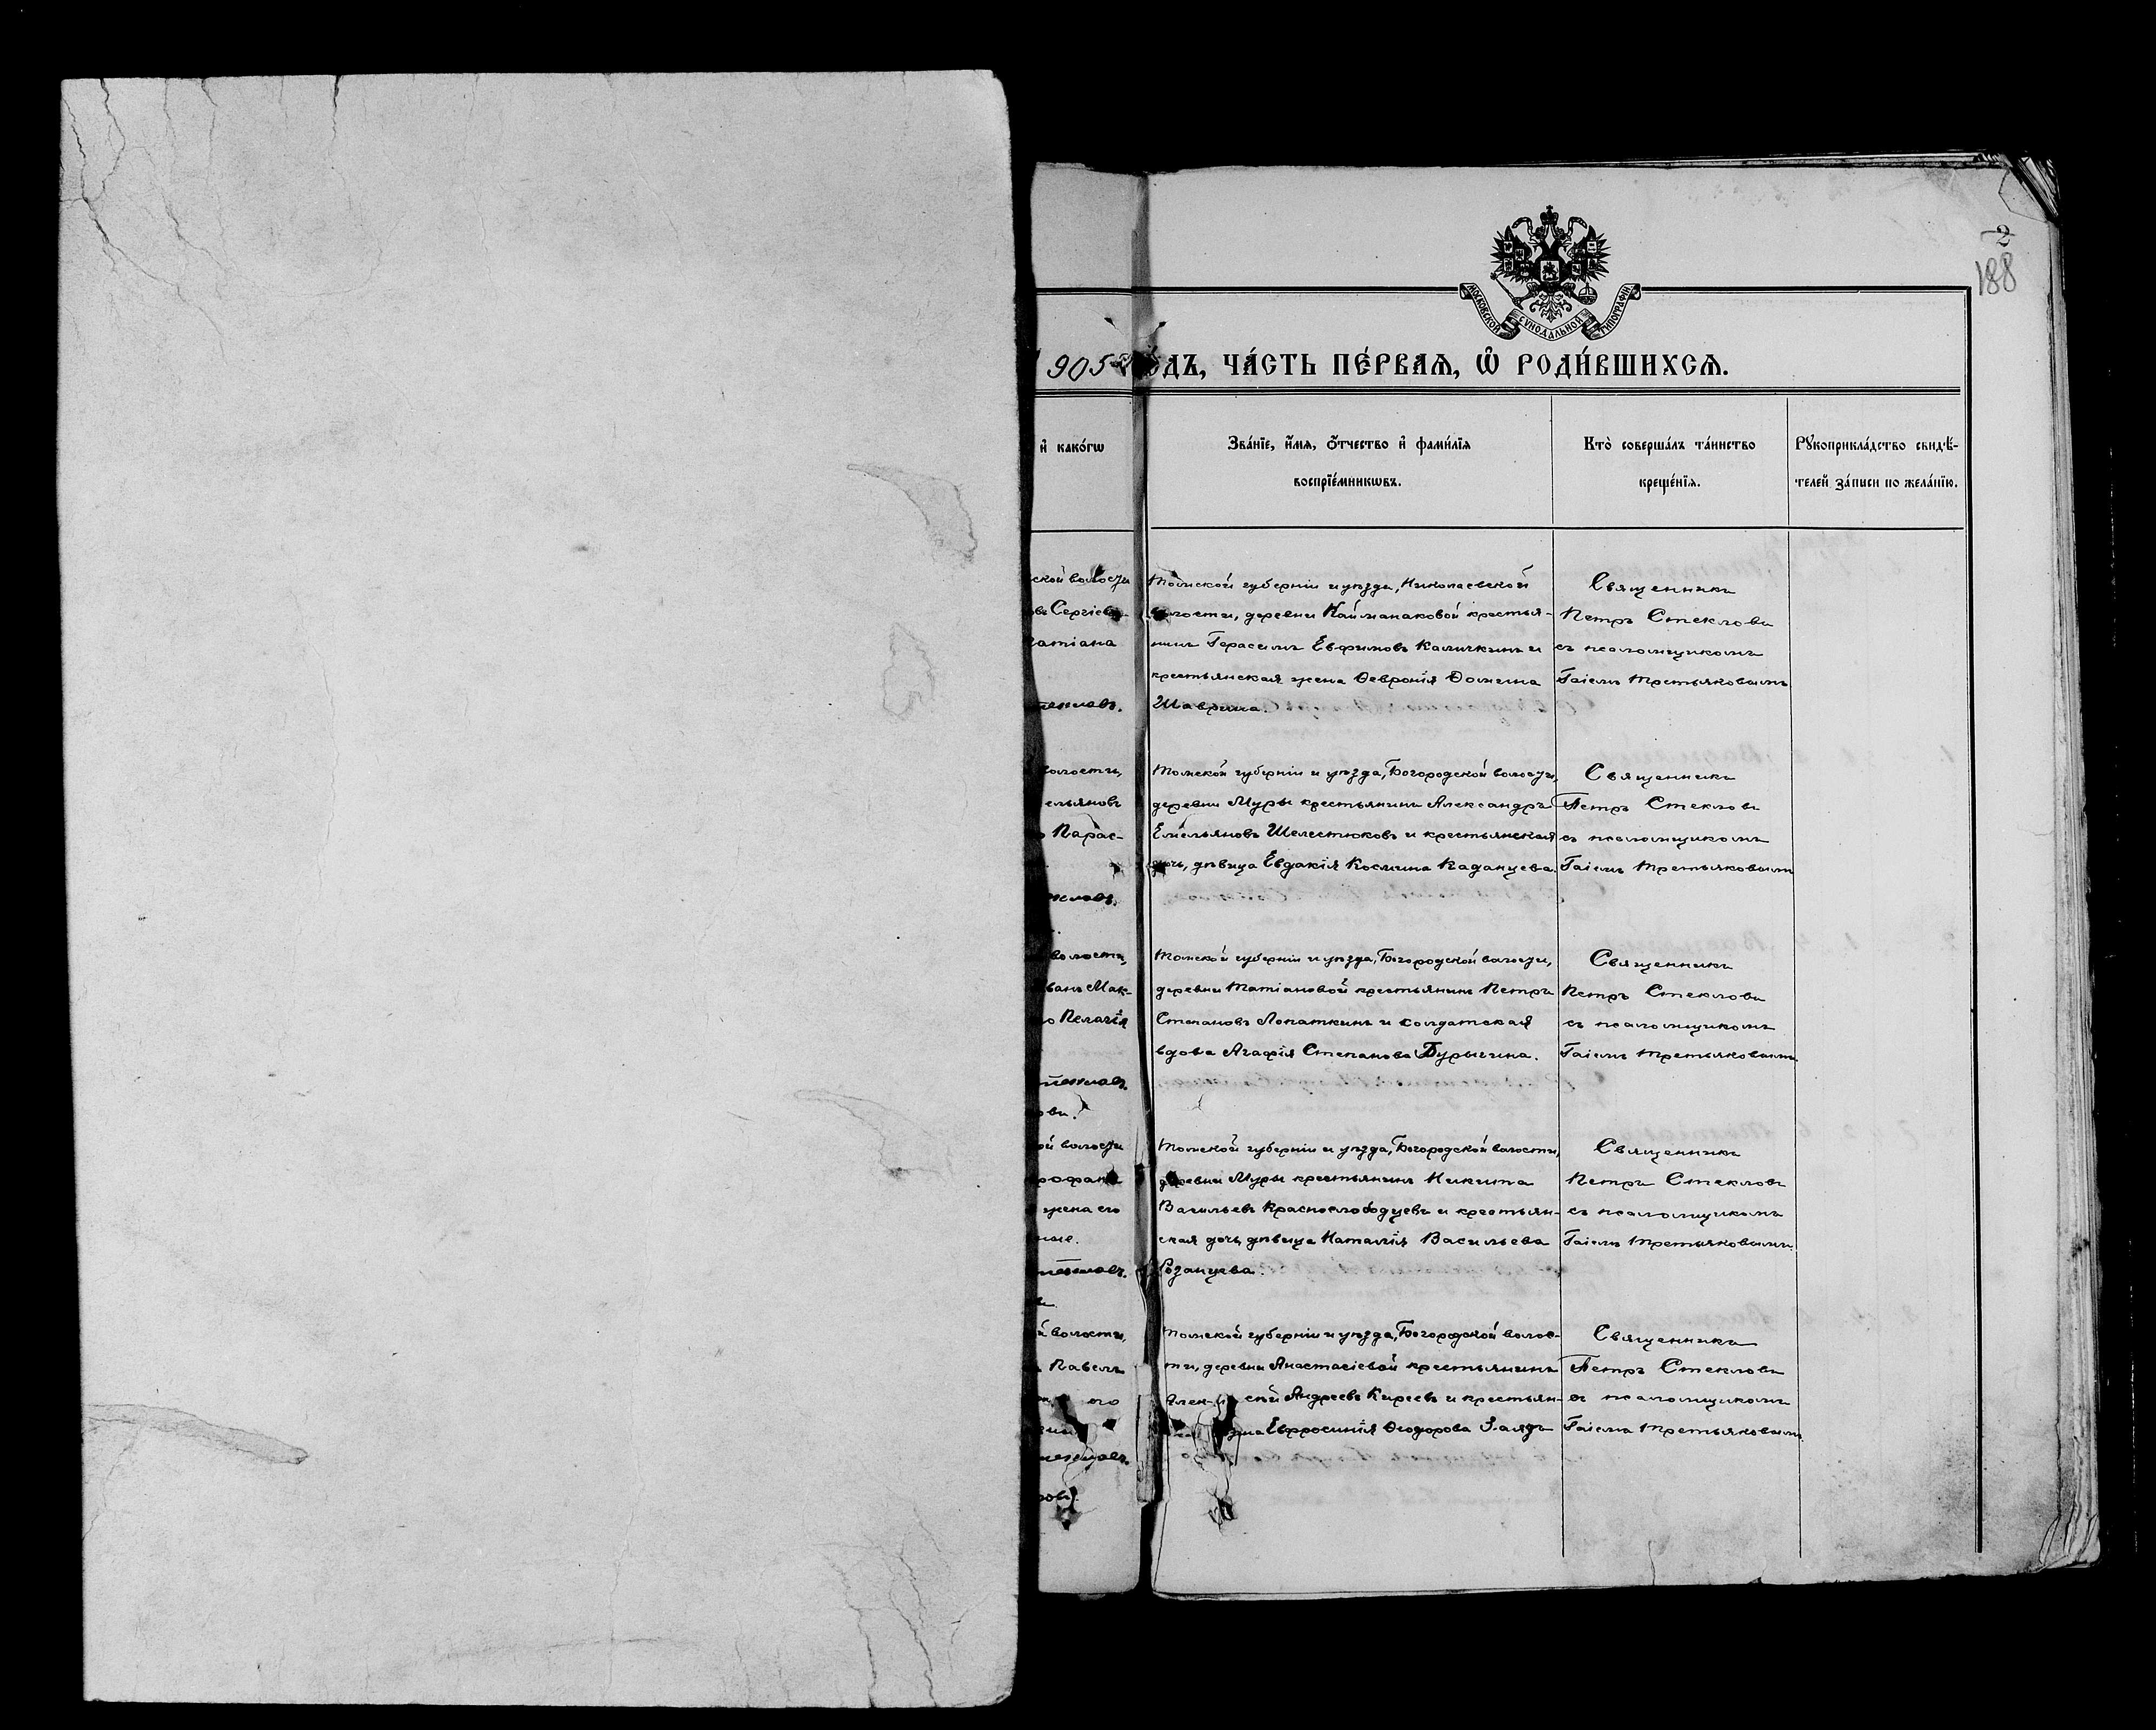 2
188
МОСКОВСКОЙ СѴНОДАЛЬНОЙ ТИПОГРАФІИ
1905 го́дъ, ча́сть пе́рваѧ, ѽ роди́вшихсѧ.
и҆ како́гѡ
Зва́нїе, и҆́мѧ, ѻ҆́тчество и҆ фами́лїѧ
воспрїе́мникѡвъ.
Кто̀ соверша́лъ та́инство
креще́нїѧ.
Рꙋкоприкла́дство свидѣ́-
телей за́писи по жела́нїю.
ской волости
овъ Сергіев
атіана
волости,
ельяновъ
Парас-
волости,
ванъ Мак-
Пелагія
ой волости
рофан
жена его
й волости,
Павелъ
его
Томской губерніи и уѣзда, Николаевской
волости, деревни Каймонаковой крестья-
нинъ Герасимъ Евфимовъ Каличкинъ и
крестьянская жена Ѳевронія Домнина
Шаврина.
Священникъ
Петръ Стекловъ
съ псаломщикомъ
Гаіемъ Третьяковымъ
Томской губерніи и уѣзда, Богородской волости,
деревни Муры крестьянинъ Александръ
Емельяновъ Шелестюковъ и крестьянская
дочь, дѣвица Евдакія Космина Каданцева.
Священникъ
Петръ Стекловъ
съ псаломщикомъ
Гаіемъ Третьяковымъ
Томской губерніи и уѣзда, Богородской волости,
деревни Татіановой крестьянинъ Петръ
Степановъ Лопаткинъ и солдатская
вдова Агафія Степанова Бурыгина.
Священникъ
Петръ Стекловъ
съ псаломщикомъ
Гаіемъ Третьяковымъ
Томской губерніи и уѣзда, Богородской волости,
деревни Муры крестьянинъ Никита
Васильевъ Краснослободцевъ и крестьян-
ская дочь, дѣвица Наталія Васильева
Священникъ
Петръ Стекловъ
съ псаломщикомъ
Гаіемъ Третьяковымъ
Томской губерніи и уѣзда, Богородской волос-
ти, деревни Анастасіевой крестьянинъ
Андреевъ Киреевъ и крестьян-
Евфросинія Ѳеодорова
Священникъ
Петръ Стекловъ
съ псаломщикомъ
Гаіемъ Третьяковымъ